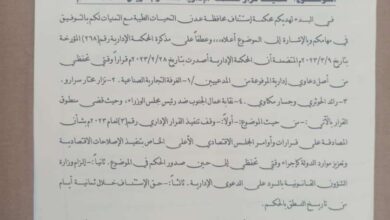 في البدء تهديكم محكمة إستئناف محافظة عدن التحيات الطيبة مع التمنيات لكم بالتوفيق
في مهامكم وبالإشارة إلى الموضوع أعلاه... وعطفاً على مذكرة المحكمة الإدارية رقم (٢٦٨) المؤرخة
بتاريخ ٢٠٢٣/٣/٩م المتضمنة أن المحكمة الإدارية أصدرت بتاريخ ٢٠٢٣/٢/٢٨م قراراً وقتي تحفظي
من أصل دعاوي إدارية المرفوعة من المدعيين/١- الغرفة التجارية الصناعية. ٢- نزار مختار سرارو.
٣- رائد الحوثري وجسار مكاوي. ٤- نقابة عمال الجنوب ضد رئيس مجلس الوزراء. وحيث قضى منطوق
القرار بالآتي:- من حيث الموضوع:- أولاً:- وقف تنفيذ القرار الإداري رقم (٣) لعام ٢٠٢٣م بشأن
المصادقة على قرارات وأوامر المجلس الاقتصادي الأعلى الخاص بتنفيذ الإصلاحات الاقتصادية
وتعزيز موارد الدولة كإجراء وقتي تحفظي إلى حين صدور الحكم في الموضوع. ثانياً:- إلزام وزارة
الشؤون القانونية بالرد على الدعوى الإدارية. ثالثاً:- حق الإستئناف خلال ثمانية أيام
من تاريخ النطق بالحكم.